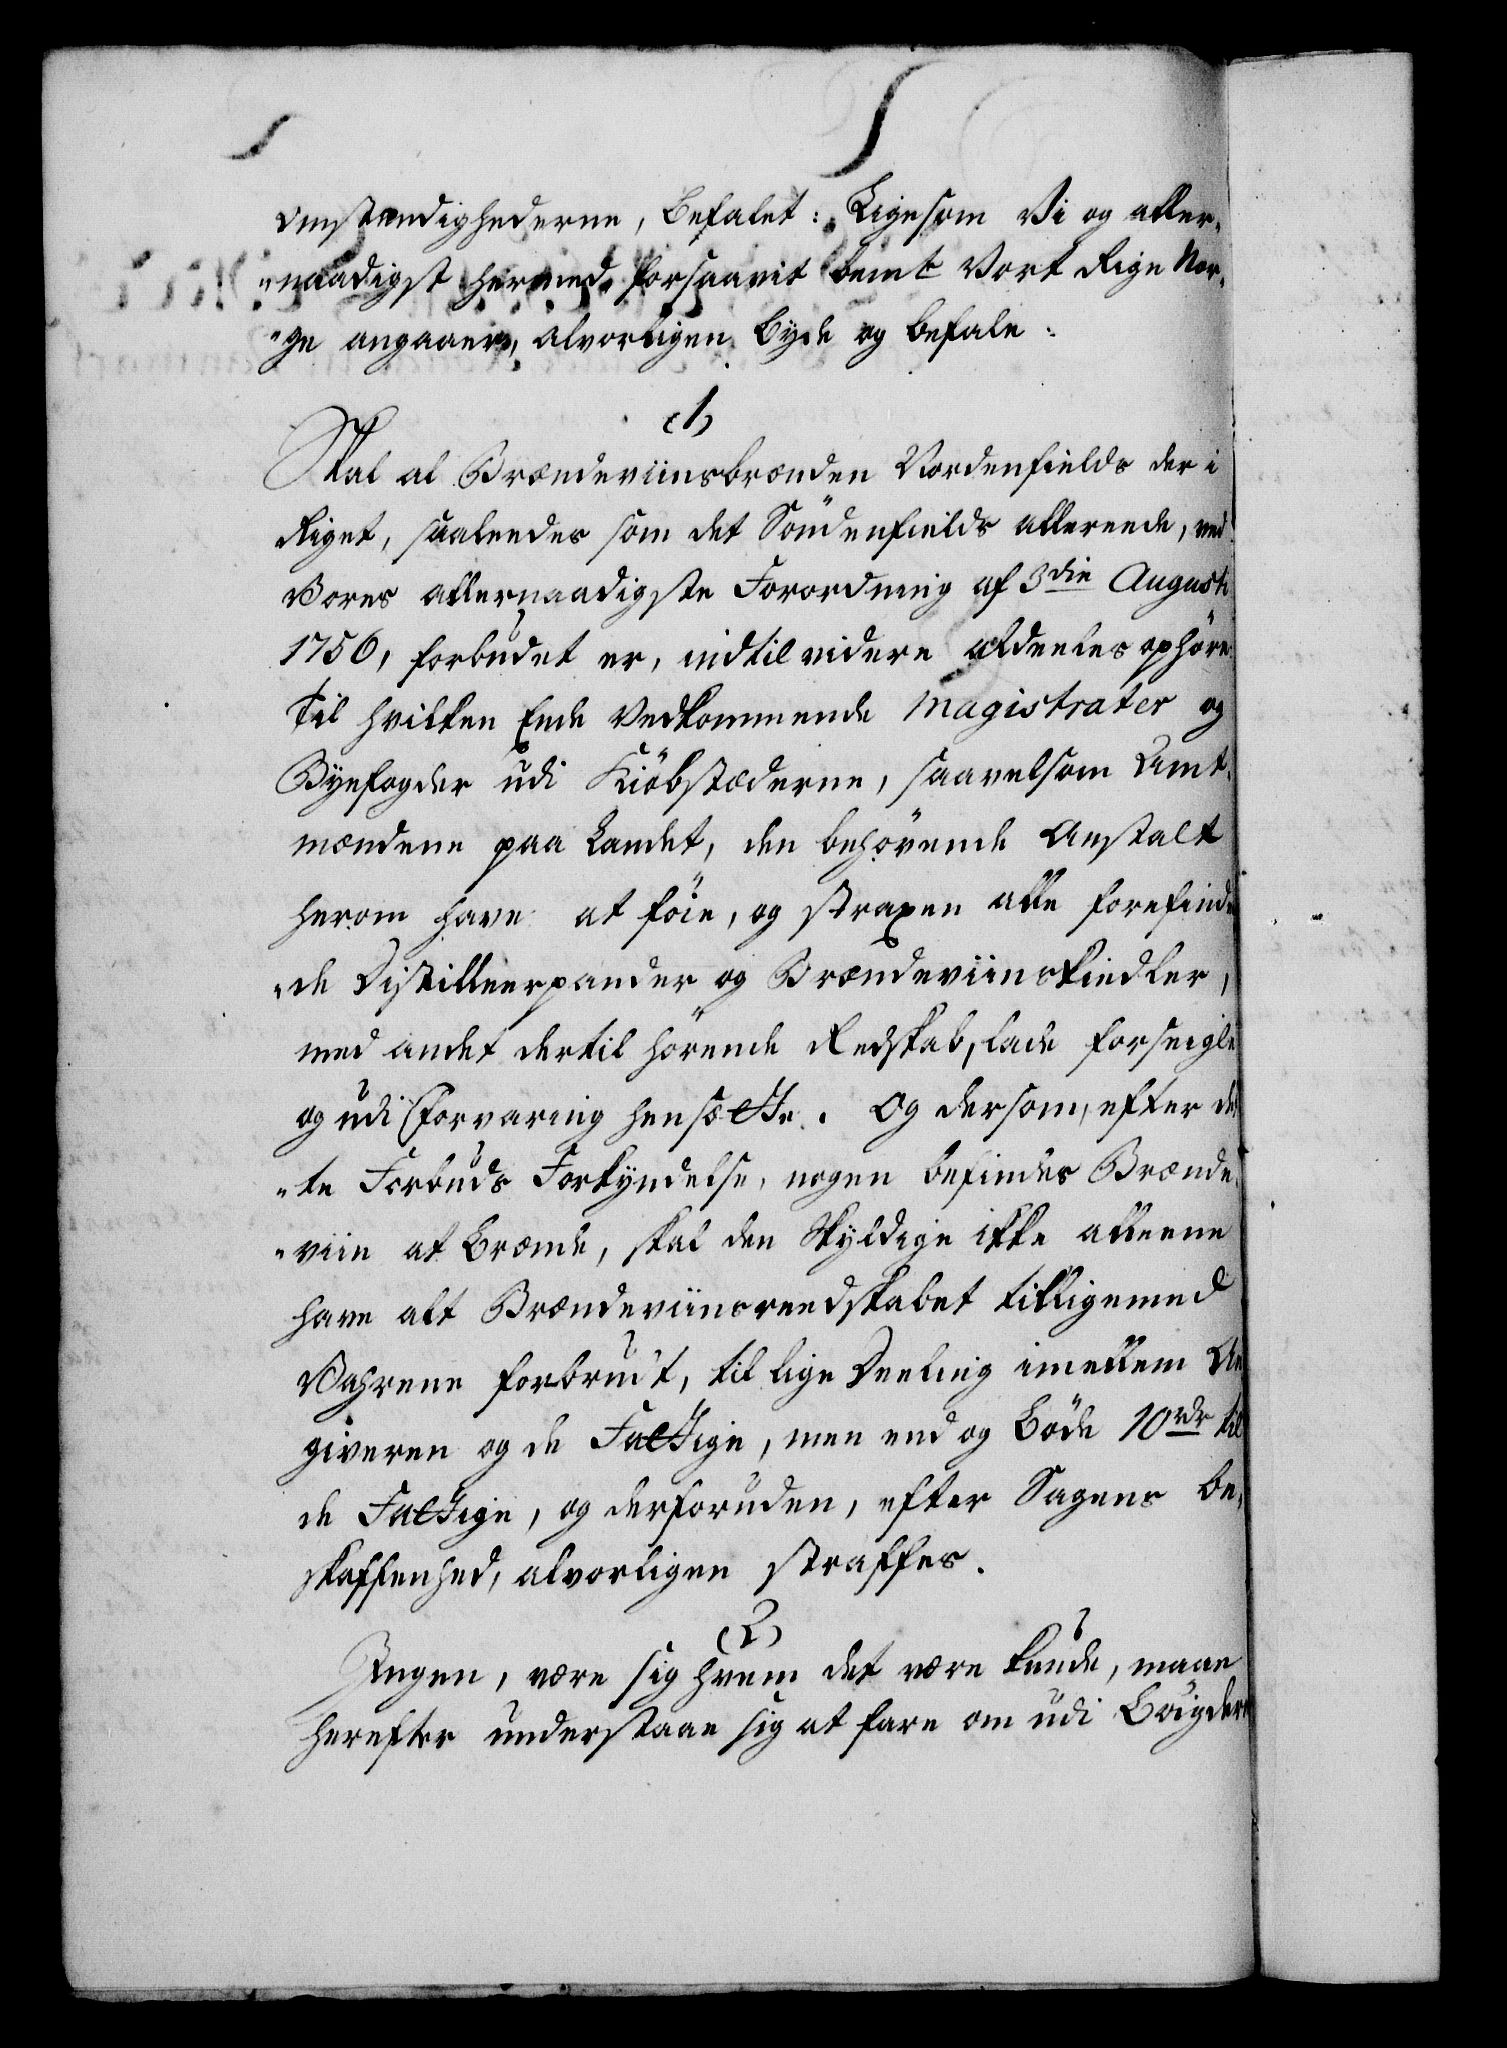 omstændighederne, befalet: Ligesom Vi og aller-
"naadigst hermed, forsaavit bemte Vort Rige Nor-
"ge angaaer, alvorligen byde og befale:
(1)
Skal al Brændeviinsbrænden Nordenfields der i
Riget, saaleedes som det Söndenfields allereede, ved
Vores allernaadigste Forordning af 3die Augusti
1756, forbudet er, indtil videre aldeeles ophöre
til hvilken Ende Vedkommende Magistrater og
Byefogder udi Kiöbstæderne, saavelsom Amt-
mændene paa Landet, den behövende Anstalt
herom have at föie, og straxen alle forefinde
"de Distilleerpander og Brændeviinskiedler,
med andet dertil hörende Redskab, lade forseigle
og udi Forvaring hensætte. Og dersom, efter det
"te Forbuds Forkyndelse, nogen befindes Brænde-
"viin at brænde, skal den Skyldige ikke alleene
have alt Brændeviinsreedskabet tilligemed
Vahrene forbrudt, til lige Deeling imellem An
giveren og de Fattige, men end og böde 10 rdr til
de Fattige, og derforuden, efter Sagens be-
skaffenhed, alvorligen straffes.
(2)
Ingen, være sig hvem det være kunde, maae
herefter understaae sig at fare om udi Böigder